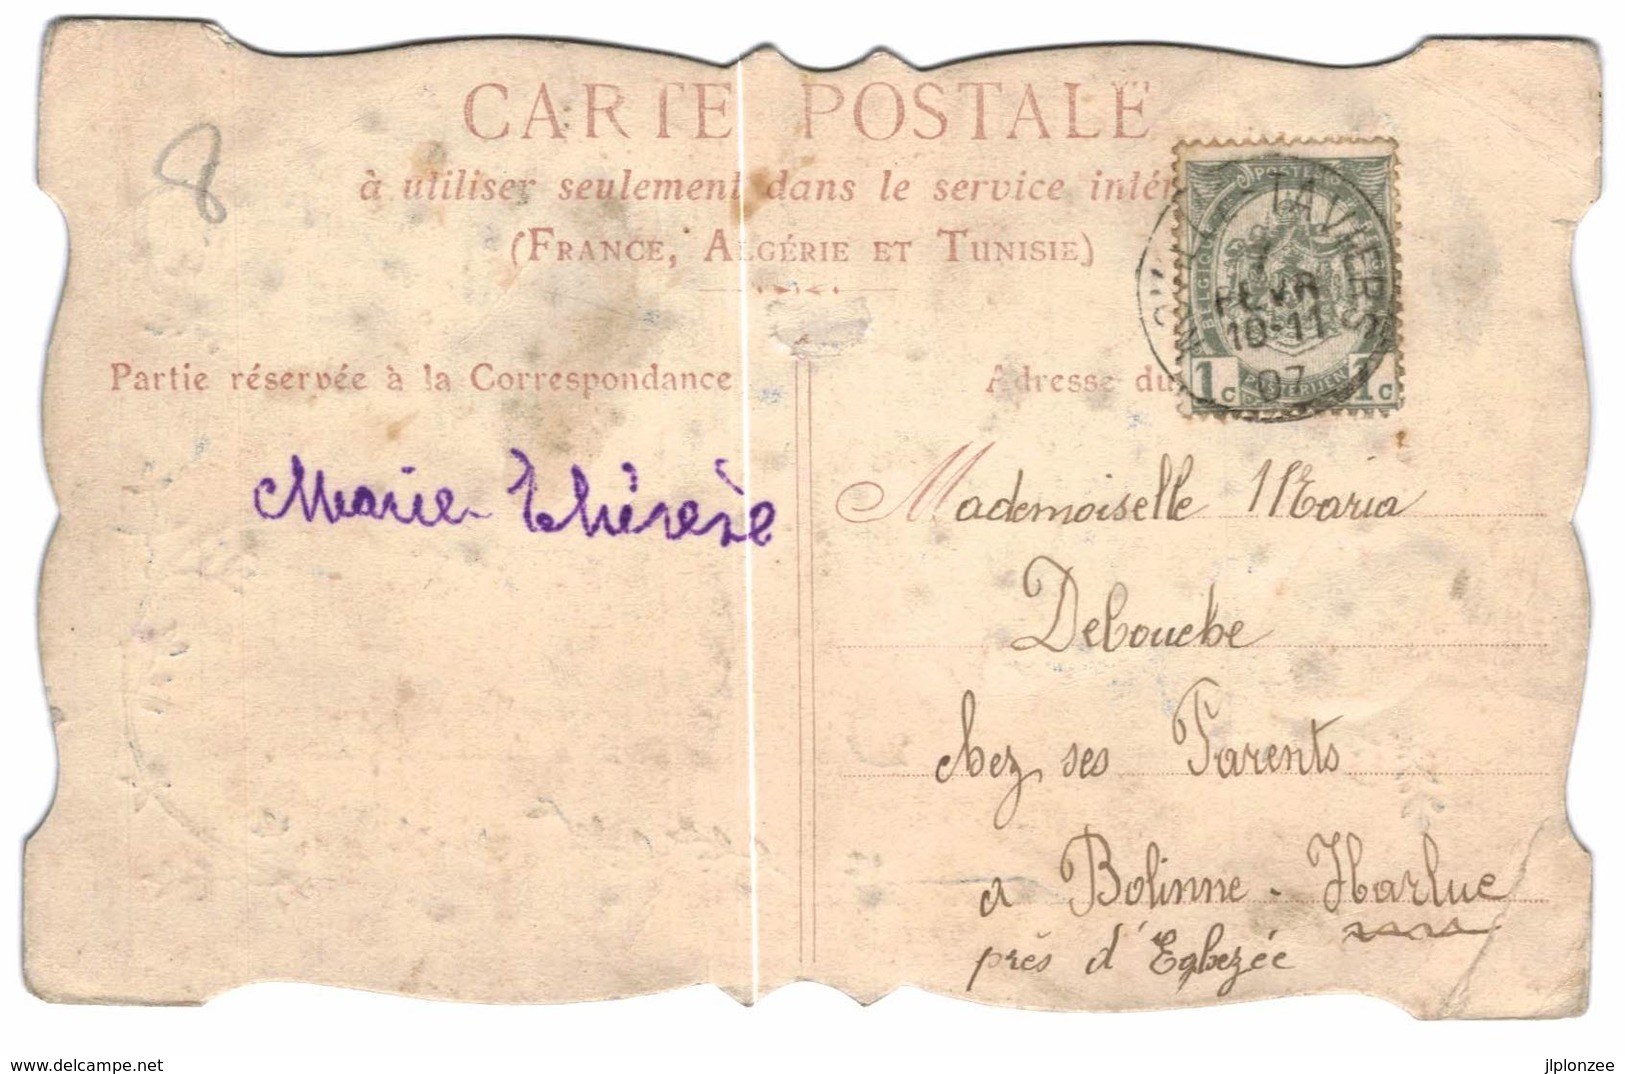 CARTE POSTALE
à utiliser seulement dans le service intér
(FRANCE, ALGÉRIE ET TUNISIE)
8
Partie réservée à la Correspondance
Adresse du
POSTES
BELGIQUE
1c POSTERIJEN 1c
TAVIERS
FEVR
10-11
07
Marie-Thérèse
Mademoiselle Maria
Debouche
chez ses Parents
a Bolinne-Harlue
près d'Eghezée
www.delcampe.net
jlplonzee